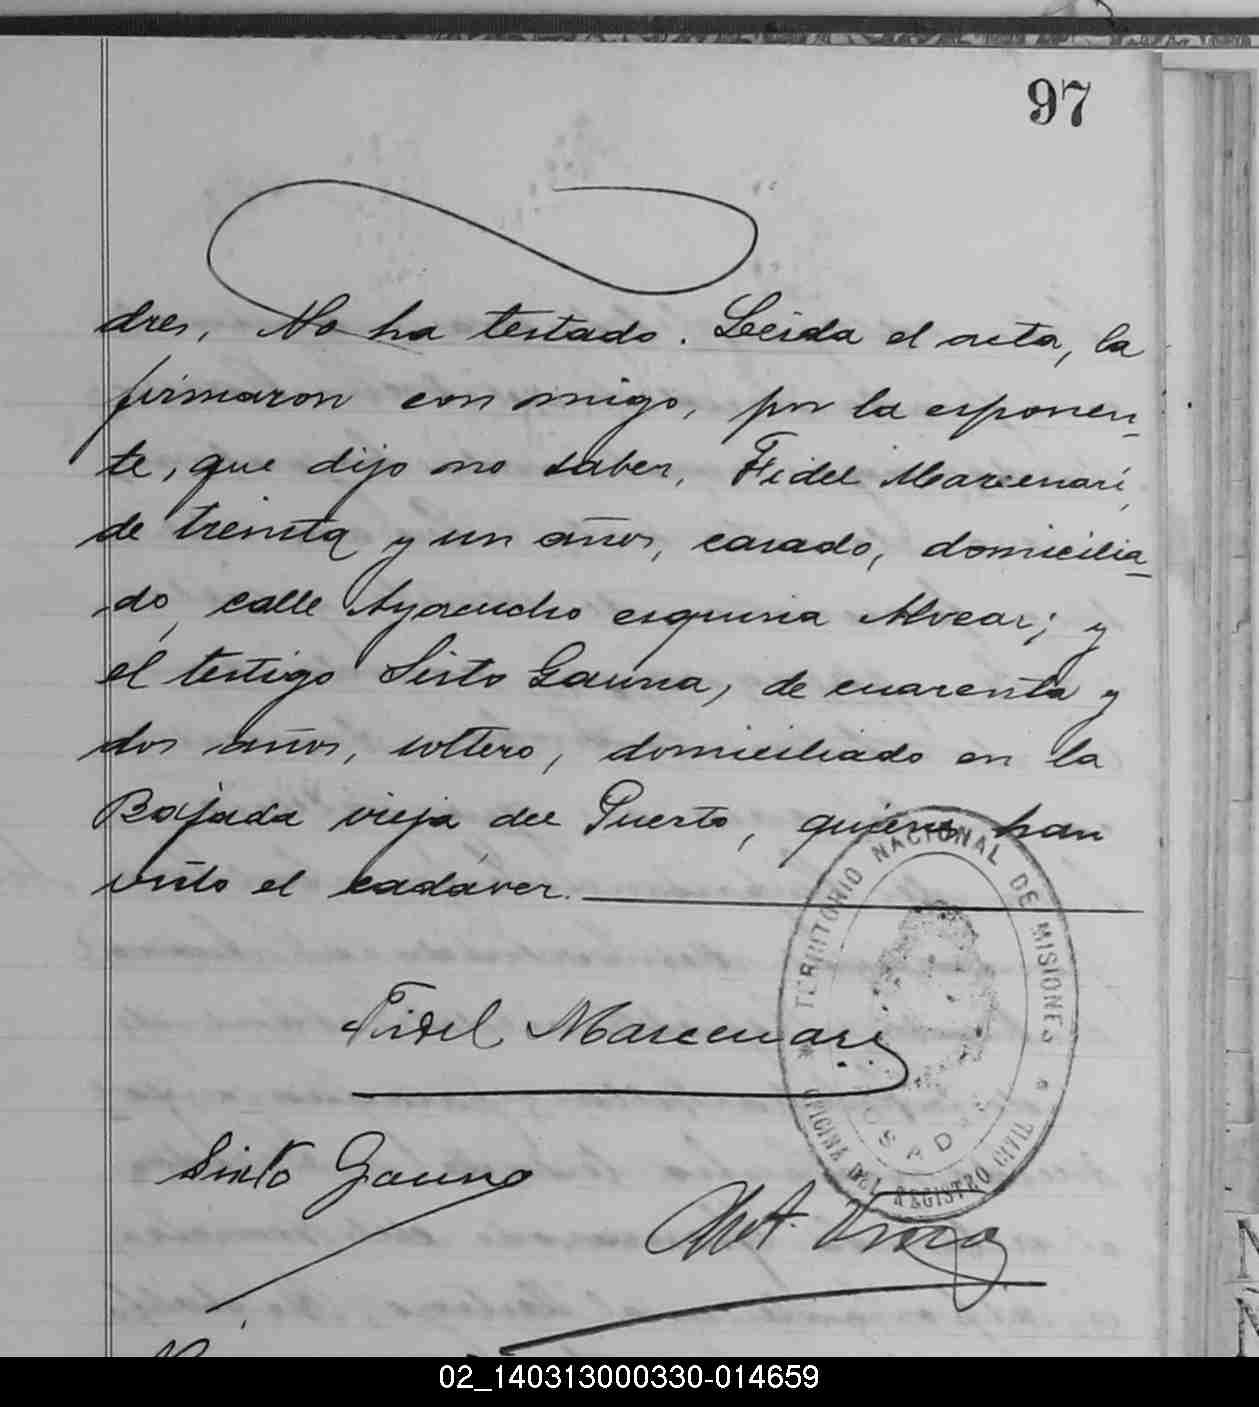 97
dres, No ha testado. Leida el acta, la
firmaron con migo, por la esponen_
te, que dijo no saber, Fidel Marcenari,
de treinta y un años, casado, domicilia_
do, calle Ayacucho esquina Alvear; y
el testigo Sisto Gauna, de cuarenta y
dos años, soltero, domiciliado en la
Bajada vieja del Puerto, quienes han
visto el cadáver.
TERRITORIO NACIONAL DE MISIONES
POSADAS
OFICINA DEL REGISTRO CIVIL
Fidel Marcenari
Sisto Gauna
02_140313000330-014659